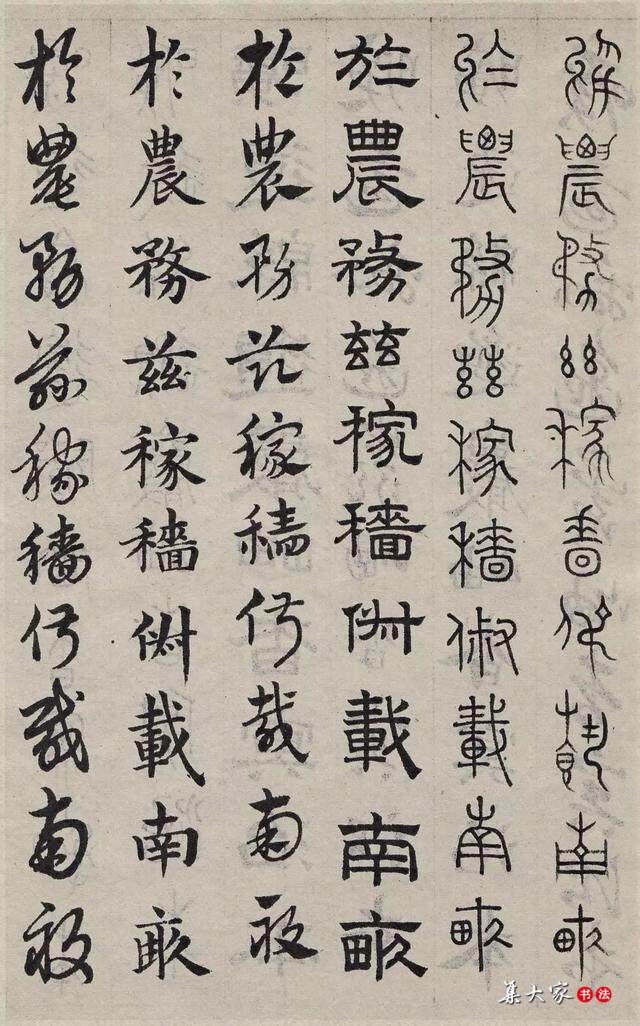 於農務茲稼穡俶載南畝
於農務茲稼穡俶載南畝
於農務茲稼穡俶載南畝
於農務茲稼穡俶載南畝
於農務茲稼穡俶載南畝
於農務茲稼穡俶載南畝
集大家书法